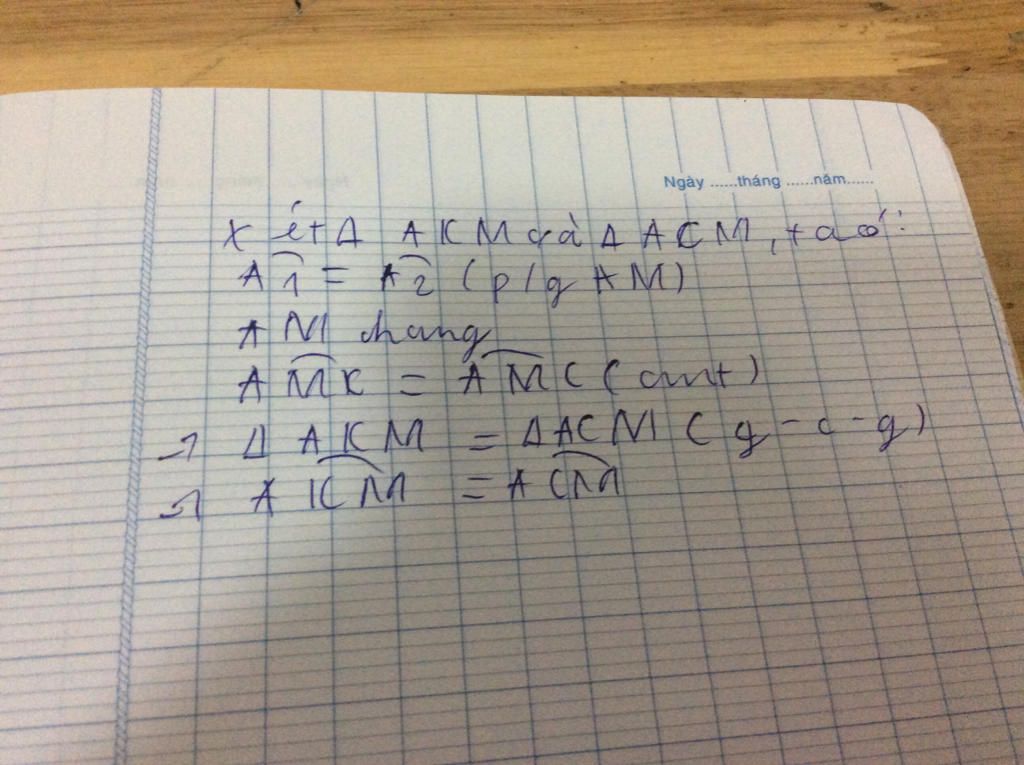 Ngày ......tháng ......năm......
Xét Δ AKM và Δ ACM, ta có:
A1 = A2 (p/g AM)
AM chung
AMK = AMC (cmt)
→ Δ AKM = Δ ACM (g-c-g)
→ AKM = ACM